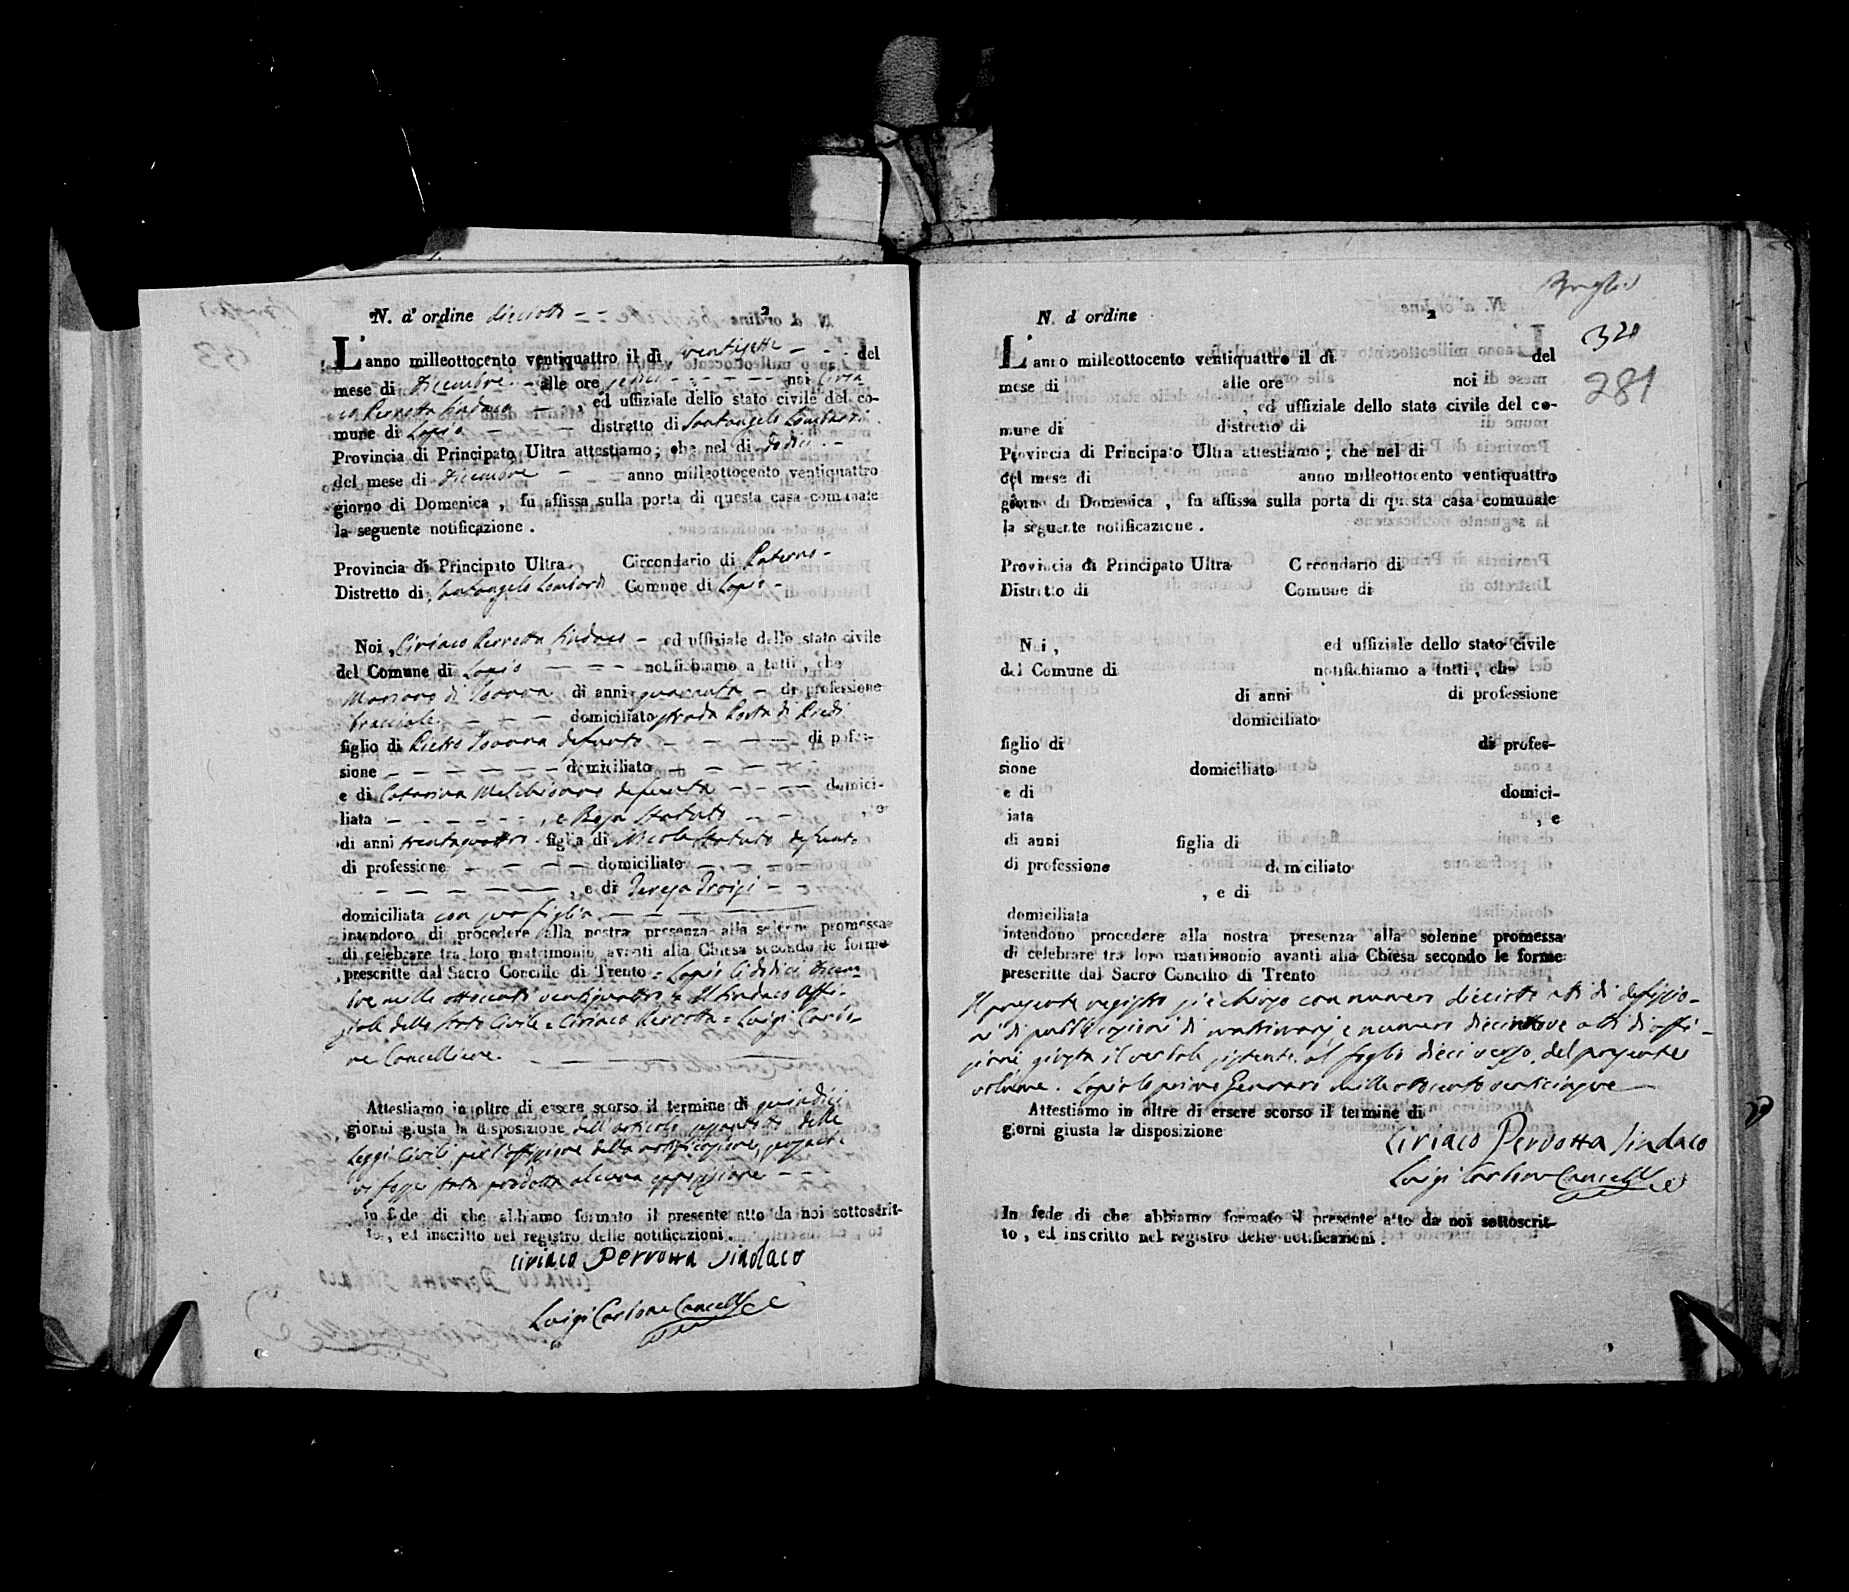 N. d' ordine dieciotto
2
L'anno milleottocento ventiquattro il dì ventisette del
mese di Dicembre alle ore sedici noi Ciria
co Perrotta Sindaco, ed uffiziale dello stato civile del co-
mune di Lapio distretto di Santangelo Lombardi
Provincia di Principato Ultra attestiamo; che nel di dodici
del mese di Dicembre anno milleottocento ventiquattro
giorno di Domenica, fu affissa sulla porta di questa casa comunale
la seguente notificazione.
Provincia di Principato Ultra Circondario di Paterno
Distretto di Santangelo Lombardi Comune di Lapio
Noi, Ciriaco Perrotta Sindaco ed uffiziale dello stato civile
del Comune di Lapio notifichiamo a tutti, che
Mariano di Joanna di anni quaranta di professione
bracciale domiciliato strada Porta di Piedi
figlio di Pietro Joanna defunto di pofes-
sione domiciliato
e di Catarina Melchionno defunta domici-
liata, e Rosa Statuto, e
di anni trentaquattro figlia di Nicola Statuto defunto
di professione domiciliato
, e di Teresa Troisi
domiciliata con sua figlia
intendoro di procedere alla nostra presenza alla solenne promessa
di celebrare trà loro matrimonio avanti alla Chiesa secondo le forme
prescritte dal Sacro Concilio di Trento = Lapio li dodici Dicem-
bre mille ottocento ventiquattro = Il Sindaco Uffi-
ziale dello Stato Civile = Ciriaco Perrotta = Luigi Carbo-
ne Cancelliere.
Attestiamo in oltre di essere scorso il termine di quindici
giorni giusta la disposizione dell'articolo delle
Leggi Civili per l'affissione della notificazione,
vi fosse stata prodotta alcuna opposizione
in fede di che abbiamo formato il presente atto da noi sottoscrit-
to, ed inscritto nel registro delle notificazioni.
Ciriaco Perrotta Sindaco
Luigi Carbone Cancelliere
320
281
N. d ordine
2
L'anno milleottocento ventiquattro il di del
mese di alle ore noi
, ed uffiziale dello stato civile del co-
mune di distretto di
Provincia di Principato Ultra attestiamo; che nel di
del mese di anno milleottocento ventiquattro
giorno di Domenica, fu affissa sulla porta di questa casa comunale
la seguente notificazione.
Provincia di Principato Ultra Circondario di
Distretto di Comune di
Noi, ed uffiziale dello stato civile
del Comune di notifichiamo a tutti, che
di anni di professione
domiciliato
figlio di di profes-
sione domiciliato
e di domici-
iata, e
di anni figlia di
di professione domiciliato
, e di
domiciliata
intendono procedere alla nostra presenza alla solenne promessa
di celebrare tra loro matrimonio avanti alla Chiesa secondo le forme
prescritte dal Sacro Concilio di Trento
Il presente registro si è chiuso con numero dieciotto atti di
ni di pubblicazioni di matrimonj, e numero diecinnove atti di affi-
giusta il verbale sistente al foglio dieci verso del presente
volume. Lapio lo primo Gennaro mille ottocento venticinque
Attestiamo in oltre di essere scorso il termine di
giorni giusta la disposizione
Ciriaco Perrotta Sindaco
Luigi Carbone Cancelliere
In fede di che abbiamo formato il presente atto da noi sottoscrit-
to, ed inscritto nel registro delle notificazioni.